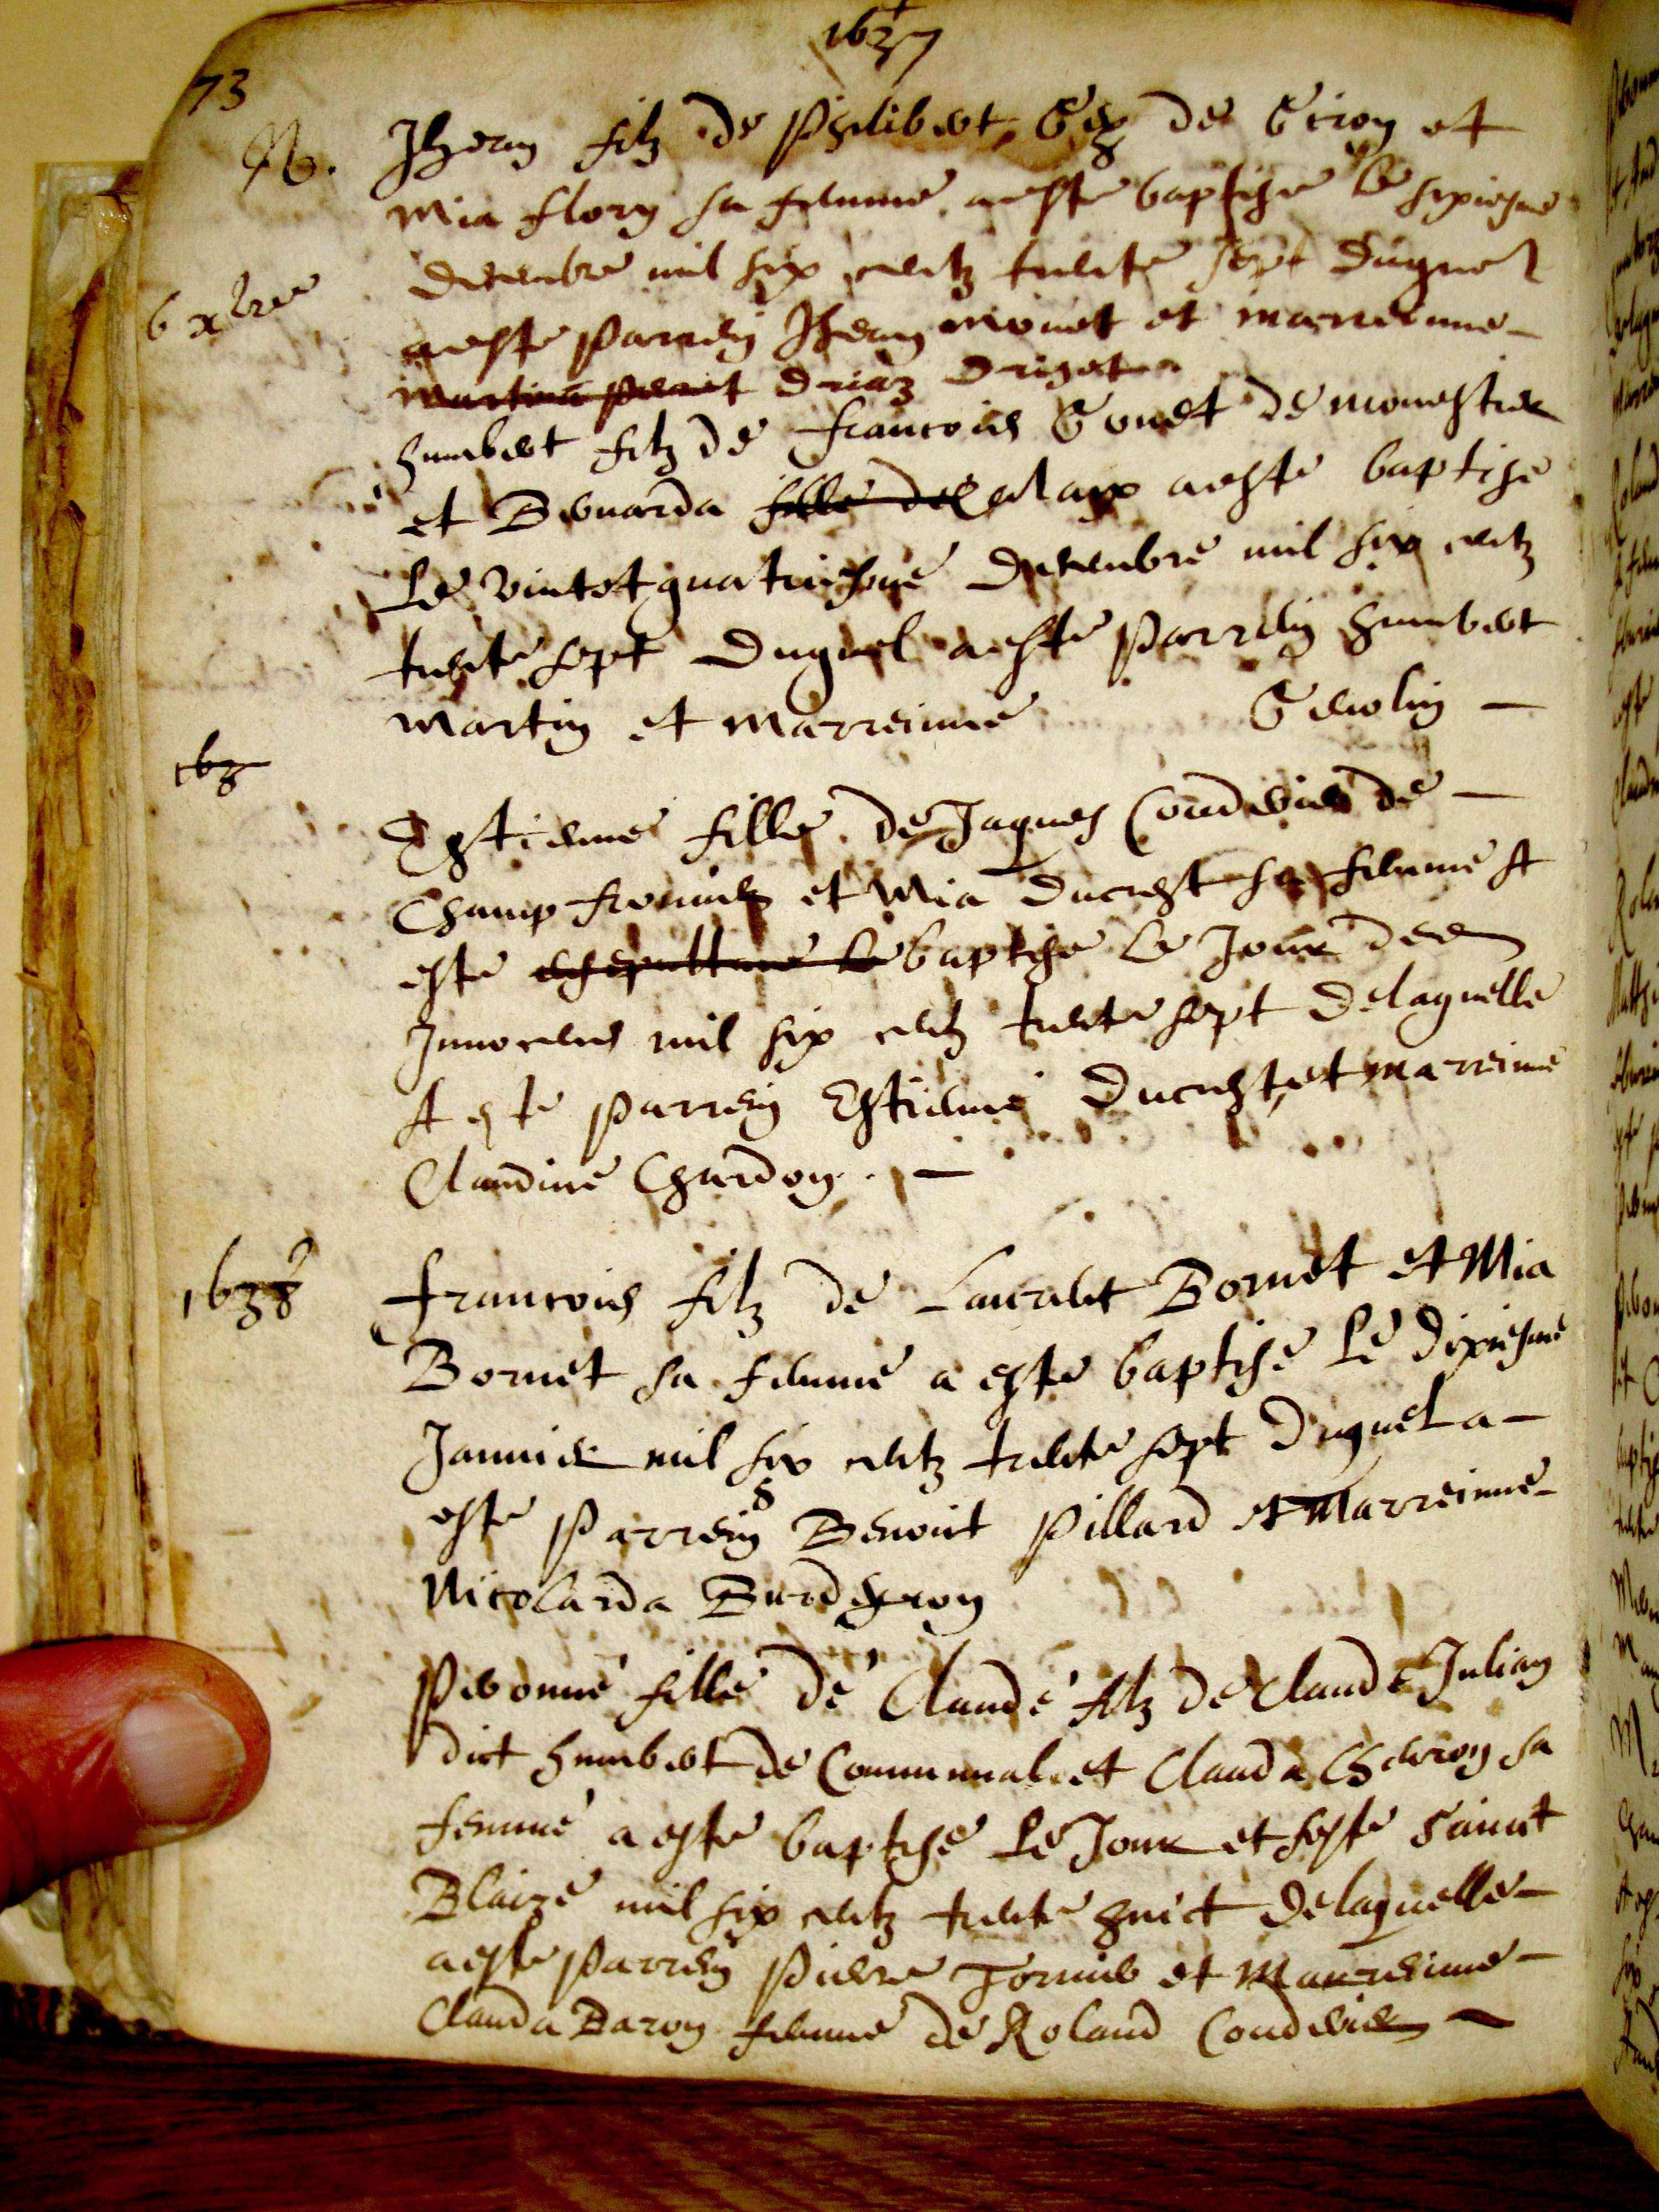 1637
73
N. Jhean filz de Philibert Gex de Giron et
Mia Flory sa femme a este baptise le sixiesme
6 xbre decembre mil six centz trente sept duquel
a este parrein Jhean Monet et marreinne
martine pernet Driaz Driget
humbert filz de francois Gonet de monestier
et Bernarda fille de a este baptise
Le vintetquatriesme decembre mil six centz
trente sept duquel a este parrein humbert
martin et marreinne Gerolin
163
Estienne fille de Jaques Coudurier de
Champ fromier et Mia Ducrest sa femme A
este baptise le Jour des
Innocens mil six centz trente sept de laquelle
A este parrein Estienne Ducrest, et marreinne
Claudine Chardon.
1638 francois filz de Laurent Bornet et Mia
Bornet sa femme a este baptise le dixiesme
Janvier mil six centz trente sept duquel a
8
este parrein Benoict Pillard et Marreinne
Nicolarda Burdeyron
Pivonne fille de Claude filz de Claude Julian
dict humbert de Communal et Clauda Chevron sa
femme a este baptise le Jour et feste Sainct
Blaize mil six centz trente huict de laquelle
a este parrein Pierre Tornier et Marreinne
Clauda Baron femme de Roland Coudurier